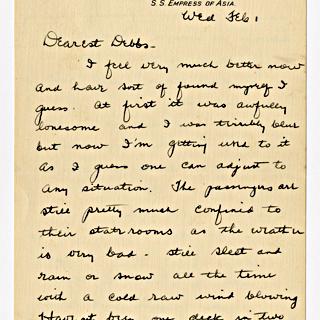 S.S. EMPRESS OF ASIA.
Wed Feb 1
Dearest Debbs-
I feel very much better now
and have sort of found myself I
guess. At first it was awfully
lonesome and I was terribly blue
but now I'm getting used to it
as I guess one can adjust to
any situation. The passengers are
still pretty much confined to
their staterooms as the weather
is very bad - still sleet and
rain or snow all the time
with a cold raw wind blowing
Haven't been on deck in two